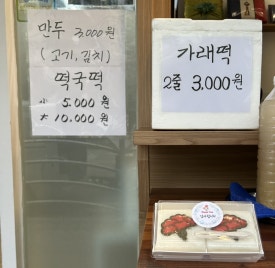 만두 3,000원
(고기, 김치)
떡국떡
小 5.000원
大 10.000원
가래떡
2줄 3.000원